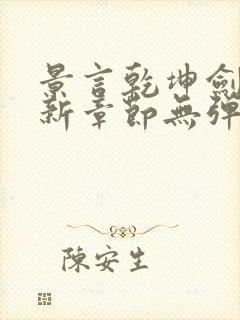 景言乾坤劍
新章節無彈
陳安生